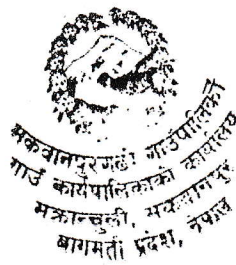 मकवानपुरगढी गाउँपालिका
गाउँ कार्यपालिकाको कार्यालय
मक्रान्चुली, मकवानपुर
बागमती प्रदेश, नेपाल